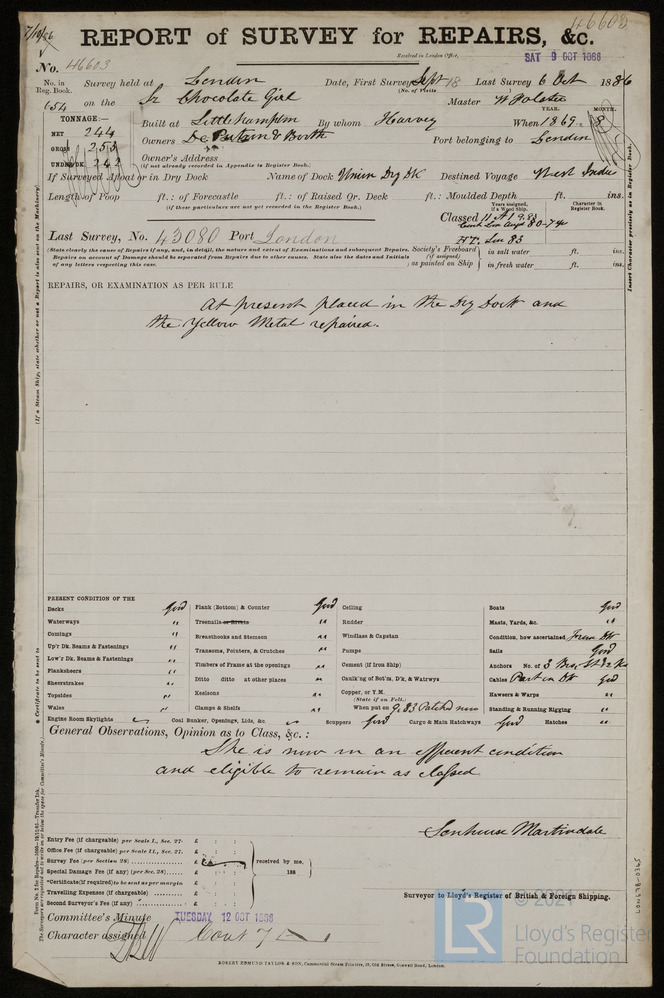 7/10/86
46603
REPORT of SURVEY for REPAIRS, &c.
Received in London Office,
SAT 9 OCT 1886
No. 46603
No. in Reg. Book. Survey held at London Date, First Survey Sept 18 Last Survey 6 Oct 1886
(No. of Visits )
654 on the Sr Chocolate Girl Master W Polster
TONNAGE:— YEAR. MONTH.
NET 244 Built at Little hampton By whom Harvey When 1869 8
GROSS 253 Owners De & Booth Port belonging to London
UNDER DK 242 Owner's Address
(if not already recorded in Appendix to Register Book.)
If Surveyed Afloat or in Dry Dock Name of Dock Union Dry Dk Destined Voyage West Indies
Length of Poop ft.: of Forecastle ft.: of Raised Qr. Deck ft.: Moulded Depth ft. ins.
(if these particulars are not yet recorded in the Register Book.)
Years assigned, if a Wood Ship.
Character in Register Book.
Classed 11 A1 9.83
80-7
Last Survey, No. 43080 Port London HT. Lon 83
(State clearly the cause of Repairs if any, and, in detail, the nature and extent of Examinations and subsequent Repairs. Repairs on account of Damage should be separated from Repairs due to other causes. State also the dates and Initials of any letters respecting this case.
Society's Freeboard (if assigned) as painted on Ship
in salt water ft. ins.
in fresh water ft. ins.
REPAIRS, OR EXAMINATION AS PER RULE
At present placed in the Dry Dock and
the Yellow Metal repaired.
PRESENT CONDITION OF THE
Decks Good
Waterways "
Comings "
Up'r Dk. Beams & Fastenings "
Low'r Dk. Beams & Fastenings
Plansheers "
Sheerstrakes "
Topsides "
Wales "
Engine Room Skylights
Plank (Bottom) & Counter Good
Treenails or Rivets "
Breasthooks and Stemson "
Transoms, Pointers, & Crutches "
Timbers of Frame at the openings "
Ditto ditto at other places "
Keelsons "
Clamps & Shelfs "
Coal Bunker, Openings, Lids, &c.
Ceiling
Rudder
Windlass & Capstan
Pumps
Cement (if Iron Ship)
Caulk'ng of Bot'm, D'k, & Watrwys
Copper, or Y.M.
(State if on Felt.)
When put on 9.83 Patchd now
Scuppers Good Cargo & Main Hatchways Good Hatches "
Boats Good
Masts, Yards, &c. "
Condition, how ascertained From Dk
Sails Good
Anchors No. of 3 Brs, St 2 K
Cables Part in Dk Good
Hawsers & Warps "
Standing & Running Rigging "
General Observations, Opinion as to Class, &c.:
She is now in an efficient condition
and eligible to remain as classed
Senhouse Martindale
Entry Fee (if chargeable) per Scale I., Sec. 27- £ : :
Office Fee (if chargeable) per Scale II., Sec. 27. £ : :
Survey Fee (per Section 28) £ : : received by me,
Special Damage Fee (if any) (per Sec. 28) £ : : 188
*Certificate (if required) to be sent as per margin
Travelling Expenses (if chargeable) £ : :
Second Surveyor's Fee (if any) £ : :
Surveyor to Lloyd's Register of British & Foreign Shipping.
Committee's Minute TUESDAY 12 OCT 1886
Character assigned Cont
ROBERT EDMUND TAYLOR & SON, Commercial Steam Printers, 19, Old Street, Goswell Road, London.
Insert Character precisely as in Register Book.
(If a Steam Ship, state whether or not a Report is also sent on the Machinery)
* Certificate to be sent to
LON678-0365
© 2021
LR
Lloyd's Register
Foundation